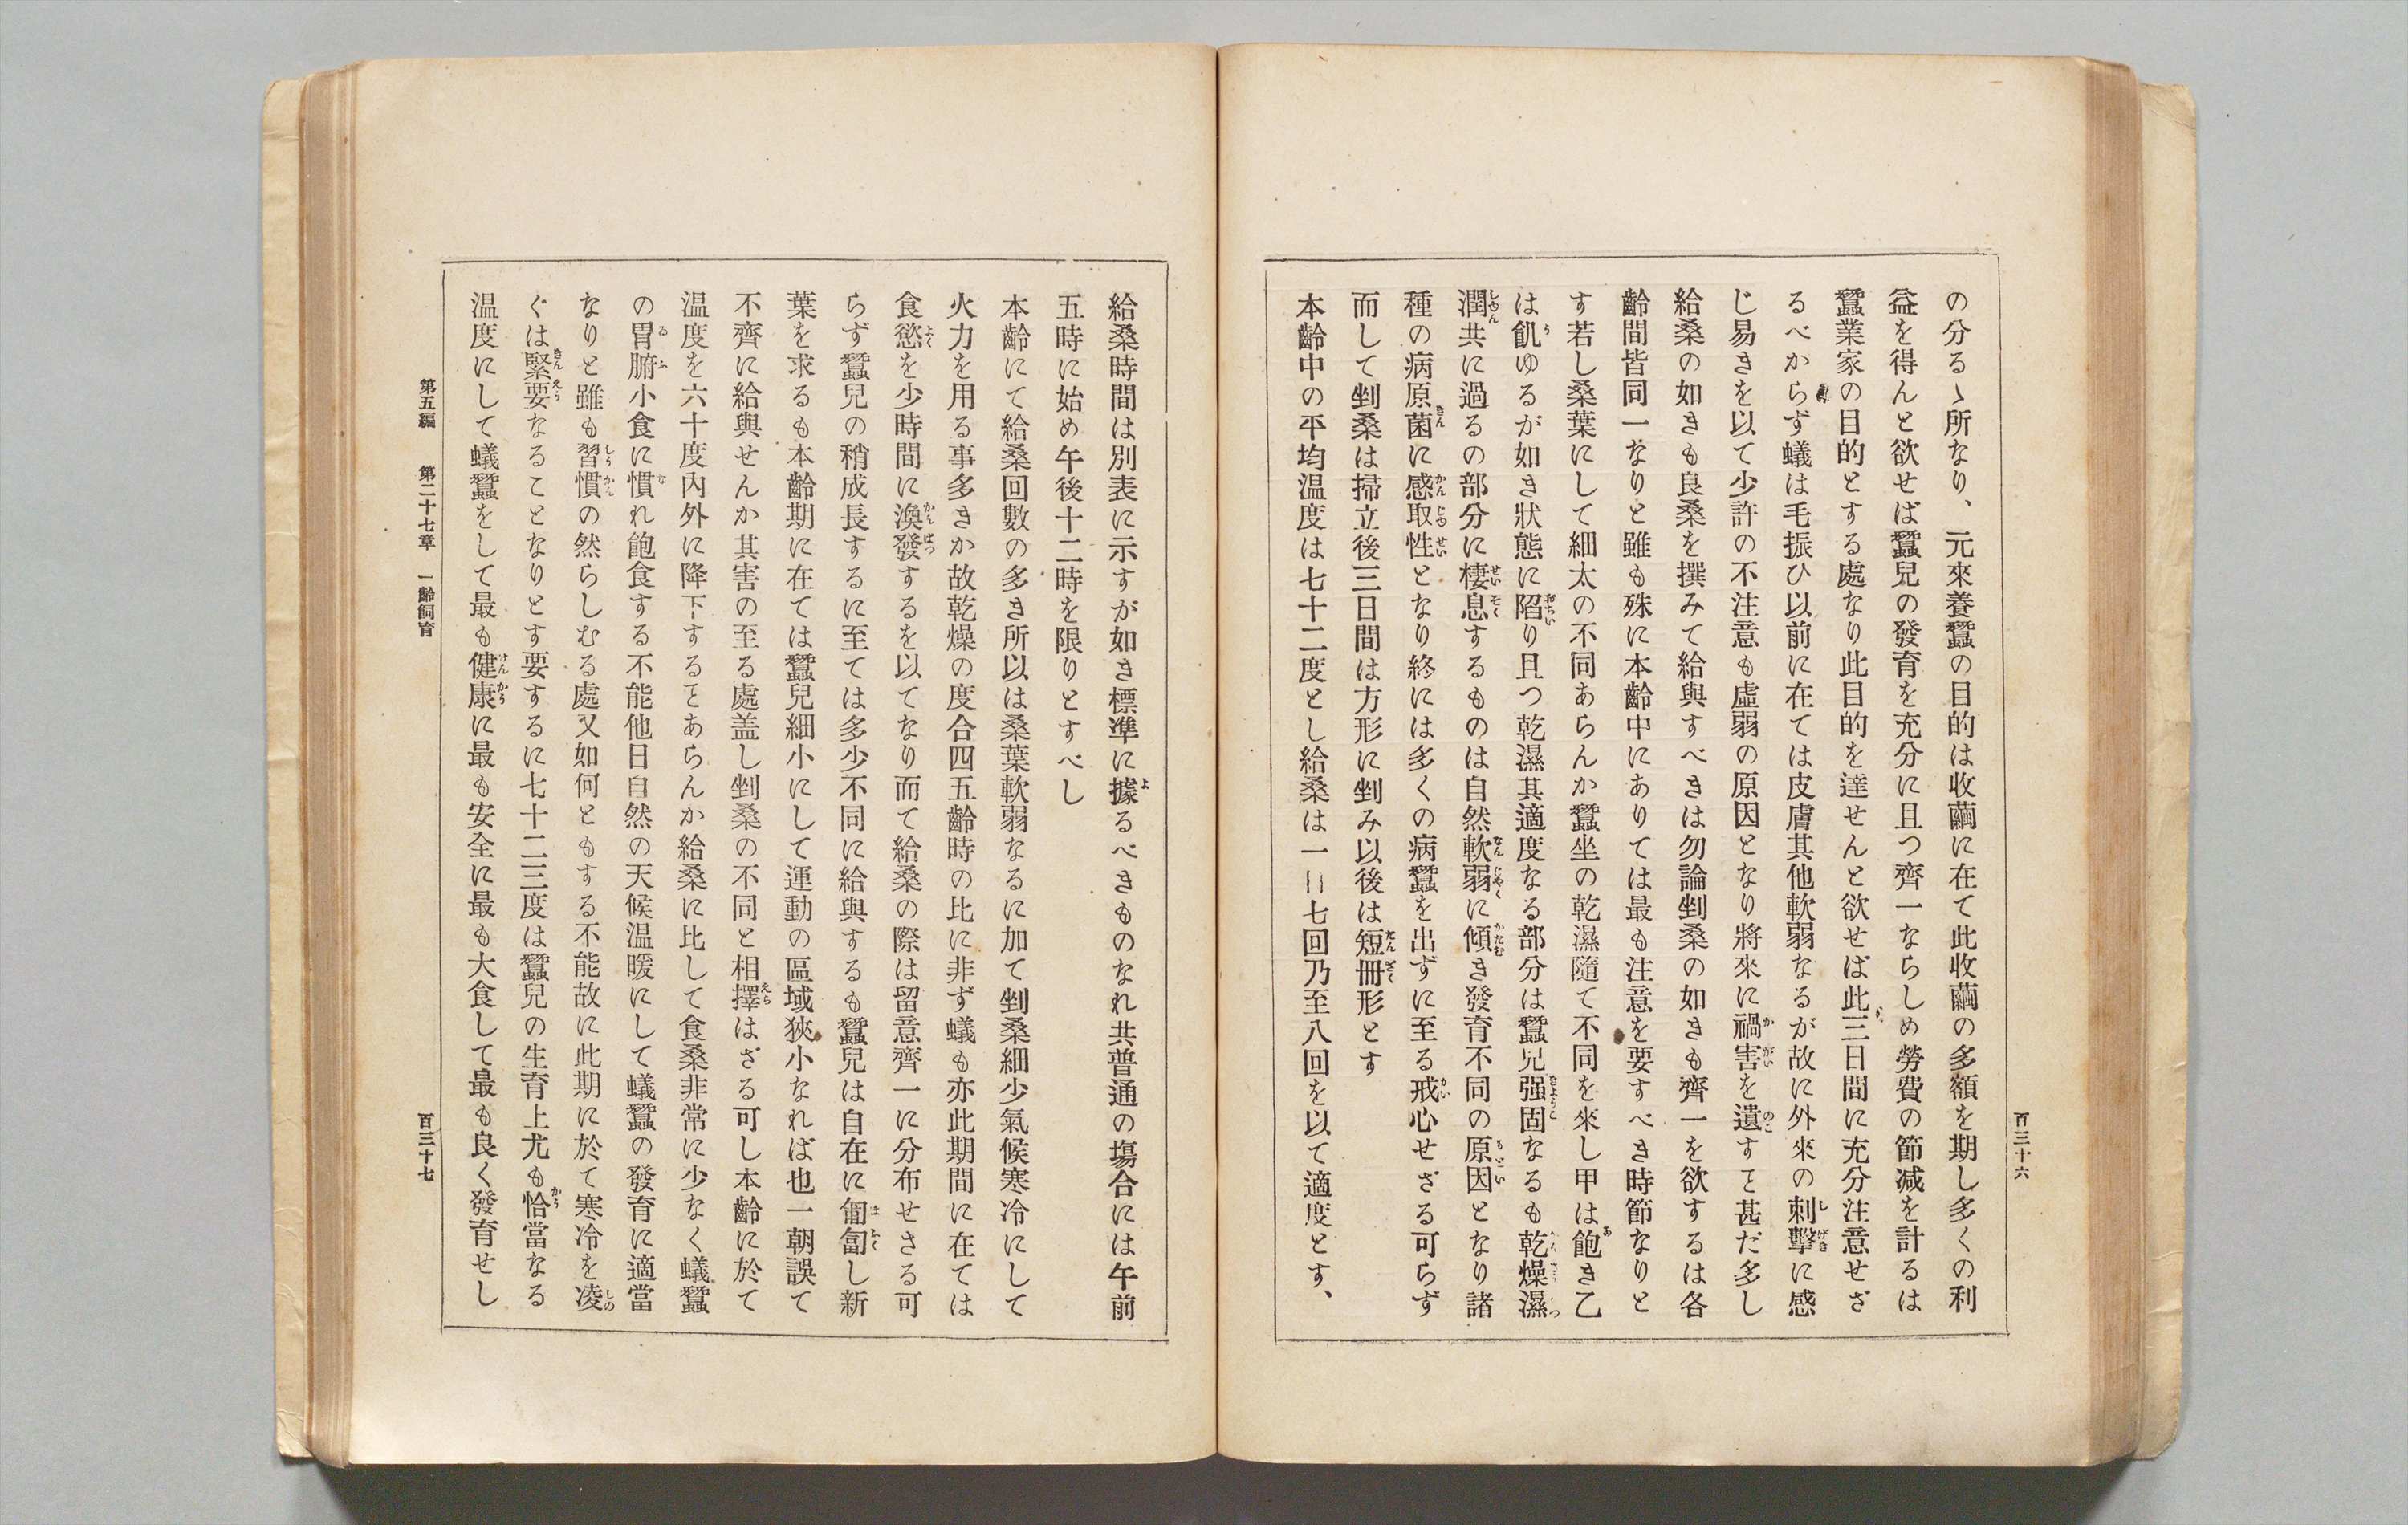 百三十六
の分るゝ所なり、元來養蠶の目的は收繭に在て此收繭の多額を期し多くの利
益を得んと欲せば蠶兒の發育を充分に且つ齊一ならしめ勞費の節减を計るは
蠶業家の目的とする處なり此目的を達せんと欲せば此三日間に充分注意せざ
るべからず蟻は毛振ひ以前に在ては皮膚其他軟弱なるが故に外來の刺擊に感
じ易きを以て少許の不注意も虛弱の原因となり將來に禍害を遺すヿ甚だ多し
給桑の如きも良桑を撰みて給與すべきは勿論剉桑の如きも齊一を欲するは各
齡間皆同一なりと雖も殊に本齡中にありては最も注意を要すべき時節なりと
す若し桑葉にして細太の不同あらんか蠶坐の乾濕隨て不同を來し甲は飽き乙
は飢ゆるが如き狀態に陷り且つ乾濕其適度なる部分は蠶兒强固なるも乾燥濕
潤共に過るの部分に棲息するものは自然軟弱に傾き發育不同の原因となり諸
種の病原菌に感取性となり終には多くの病蠶を出ずに至る戒心せざる可らず
而して剉桑は掃立後三日間は方形に剉み以後は短冊形とす
本齡中の平均温度は七十二度とし給桑は一日七回乃至八回を以て適度とす、
給桑時間は別表に示すが如き標準に據るべきものなれ共普通の塲合には午前
五時に始め午後十二時を限りとすべし
本齡にて給桑回數の多き所以は桑葉軟弱なるに加て剉桑細少氣候寒冷にして
火力を用る事多きか故乾燥の度合四五齡時の比に非ず蟻も亦此期間に在ては
食慾を少時間に渙發するを以てなり而て給桑の際は留意齊一に分布せさる可
らず蠶兒の稍成長するに至ては多少不同に給與するも蠶兒は自在に匍匐し新
葉を求るも本齡期に在ては蠶兒細小にして運動の區域狹小なれば也一朝誤て
不齊に給與せんか其害の至る處盖し剉桑の不同と相擇はざる可し本齡に於て
温度を六十度內外に降下するヿあらんか給桑に比して食桑非常に少なく蟻蠶
の胃腑小食に慣れ飽食する不能他日自然の天候温暖にして蟻蠶の發育に適當
なりと雖も習慣の然らしむる處又如何ともする不能故に此期に於て寒冷を凌
ぐは緊要なることなりとす要するに七十二三度は蠶兒の生育上尤も恰當なる
温度にして蟻蠶をして最も健康に最も安全に最も大食して最も良く發育せし
第五編 第二十七章 一齡飼育 百三十七